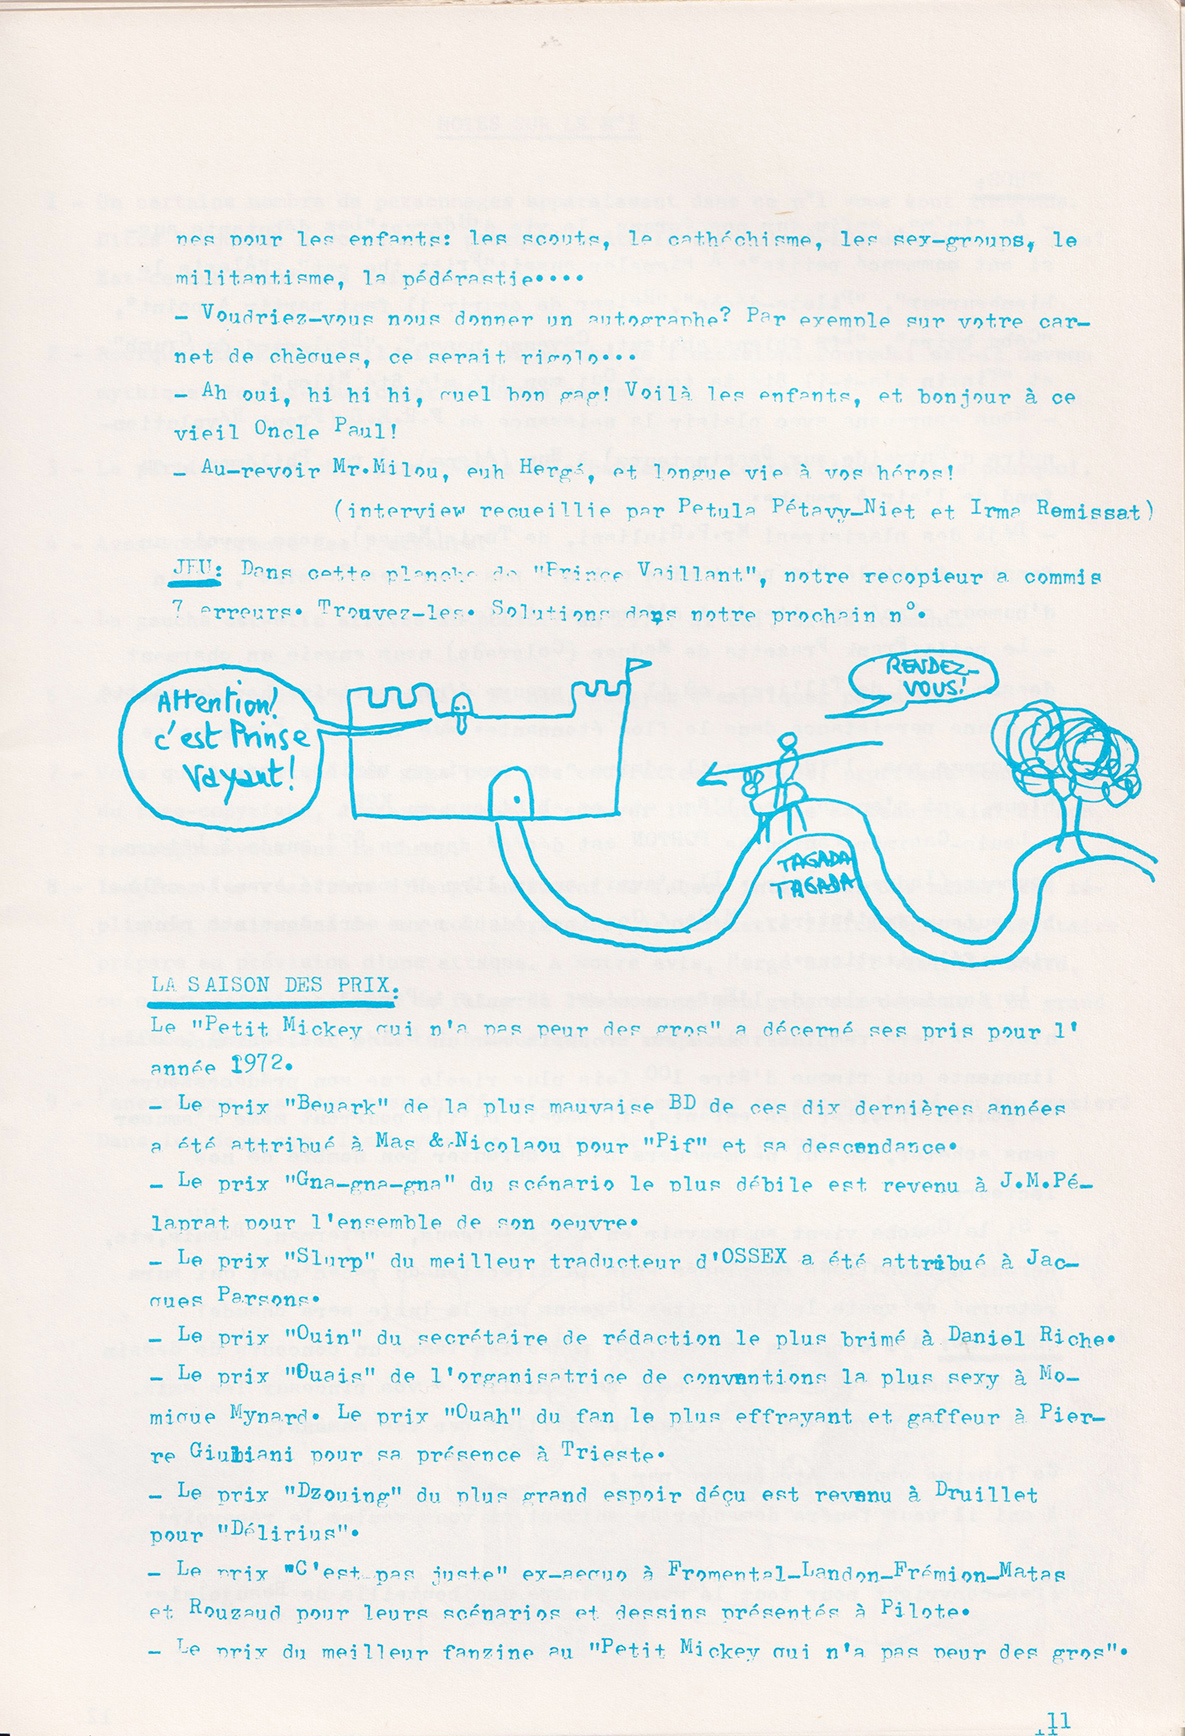 nes pour les enfants: les scouts, le cathéchisme, les sex-groups, le
militantisme, la pédérastie....
- Voudriez-vous nous donner un autographe? Par exemple sur votre car-
net de chèques, ce serait rigolo...
- Ah oui, hi hi hi, quel bon gag! Voilà les enfants, et bonjour à ce
vieil Oncle Paul!
- Au-revoir Mr.Milou, euh Hergé, et longue vie à vos héros!
(interview recueillie par Petula Pétavy-Niet et Irma Remissat)
JEU: Dans cette planche de "Prince Vaillant", notre recopieur a commis
7 erreurs. Trouvez-les. Solutions dans notre prochain n°.
Attention!
c'est Prinse
Vayant!
RENDEZ-
VOUS!
TAGADA
TAGADA
LA SAISON DES PRIX:
Le "Petit Mickey qui n'a pas peur des gros" a décerné ses pris pour l'
année 1972.
- Le prix "Beuark" de la plus mauvaise BD de ces dix dernières années
a été attribué à Mas & Nicolaou pour "Pif" et sa descendance.
- Le prix "Gna-gna-gna" du scénario le plus débile est revenu à J.M.Pé-
laprat pour l'ensemble de son oeuvre.
- Le prix "Slurp" du meilleur traducteur d'OSSEX a été attribué à Jac-
ques Parsons.
- Le prix "Ouin" du secrétaire de rédaction le plus brimé à Daniel Riche.
- Le prix "Ouais" de l'organisatrice de conventions la plus sexy à Mo-
nique Mynard. Le prix "Ouah" du fan le plus effrayant et gaffeur à Pier-
re Giuliani pour sa présence à Trieste.
- Le prix "Dzouing" du plus grand espoir déçu est revenu à Druillet
pour "Délirius".
- Le prix "C'est pas juste" ex-aequo à Fromental-Landon-Frémion-Matas
et Rouzaud pour leurs scénarios et dessins présentés à Pilote.
- Le prix du meilleur fanzine au "Petit Mickey qui n'a pas peur des gros".
11